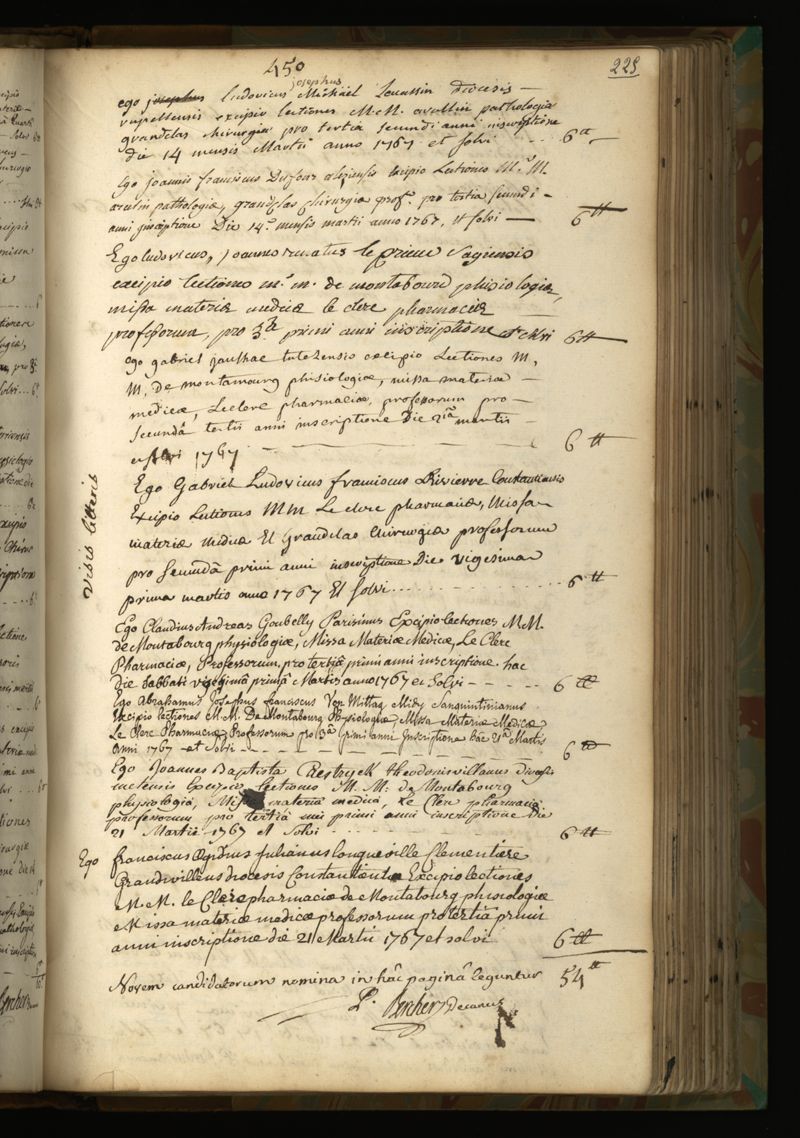 450
225
josephus
ego josephus ludovicus Michäel diocesis —
rupellensis excipio lectiones M.M. pathologia
grandclas chirurgiæ pro tertia secundi anni inscriptione
die 14 mensis Martii anno 1767 et solvi 6 tt
Ego joannes franciscus Dufour excipio Lectiones M. M.
pathologiæ, grandclas chirurgiæ prof. pro tertia secundi -
anni inscriptione Die 14 mensis martii anno 1767, et solvi — 6 tt
Ego ludovicus, joannes renatus le prieur Sagiensis
excipio lectiones m. m. de montabourg phisiologiæ,
missa materiæ medicæ le clerc pharmaciæ
professorum, pro 3â primi anni inscriptione et solvi 6 tt
ego gabriel jauchae tutelensis excipio Lectiones M,
M, De montamourg phisiologiæ, missa materiæ -
medicæ, Leclerc pharmaciæ, professorum pro -
secundâ tertii anni inscriptione Die 21â martis -
et solvi 1767 6 tt
Visis litteris
Ego Gabriel Ludovicus franciscus Rivierre Constantiensis
Excipio Lectiones MM Le clerc pharmaciæ, Missa -
materiæ medicæ Et Grandclas chirurgiæ professorum
pro secundâ primi anni inscriptione Die vigesima
prima martis anno 1767 Et solvi 6 tt
Ego Claudius Andreas Goubelly Parisinus Excipio lectiones M.M.
de Montabourg physiologiæ, Missa Materiæ Medicæ, Le Clerc
Pharmaciæ, Professorum, pro tertiâ primi anni inscriptione. hac
die sabbati vigesimâ primâ Martis anno 1767 et Solvi - - - - - 6 tt
Ego Abrahamus Josephus franciscus Von Mittag Midy Sanquintinianus
Excipio lectiones M.M. De Montabourg Physiologiæ, Missa Materiæ Medicæ
Le Clerc Pharmaciæ Professorum pro 3â Primi anni Inscriptione hâc 21â Martis
anni 1767 - et Solvi - - - - - 6 tt
Ego Joannes Baptista theodonisvillanus dioecesis
metensis Excipio lectiones M. M. de Montabourg
physiologiæ, Missa materiâ medicâ, Le Clerc pharmaciæ
professorum pro tertiâ mei primi anni inscriptione die
21 Martii 1767 et Solvi 6 tt
Ego franciscus Ægidius Julianus longueville Clementiere
Grandivilleus diocesis Constantiensis Excipio lectiones
M.M. le Clerc pharmaciæ de Montabourg phisiologiæ
Missa materiæ medicæ professorum pro tertiâ primi
anni inscriptione die 21 Martii 1767 et solvi 6 tt
Novem candidatorum nomina in hâc paginâ leguntur 54 tt
Decanus